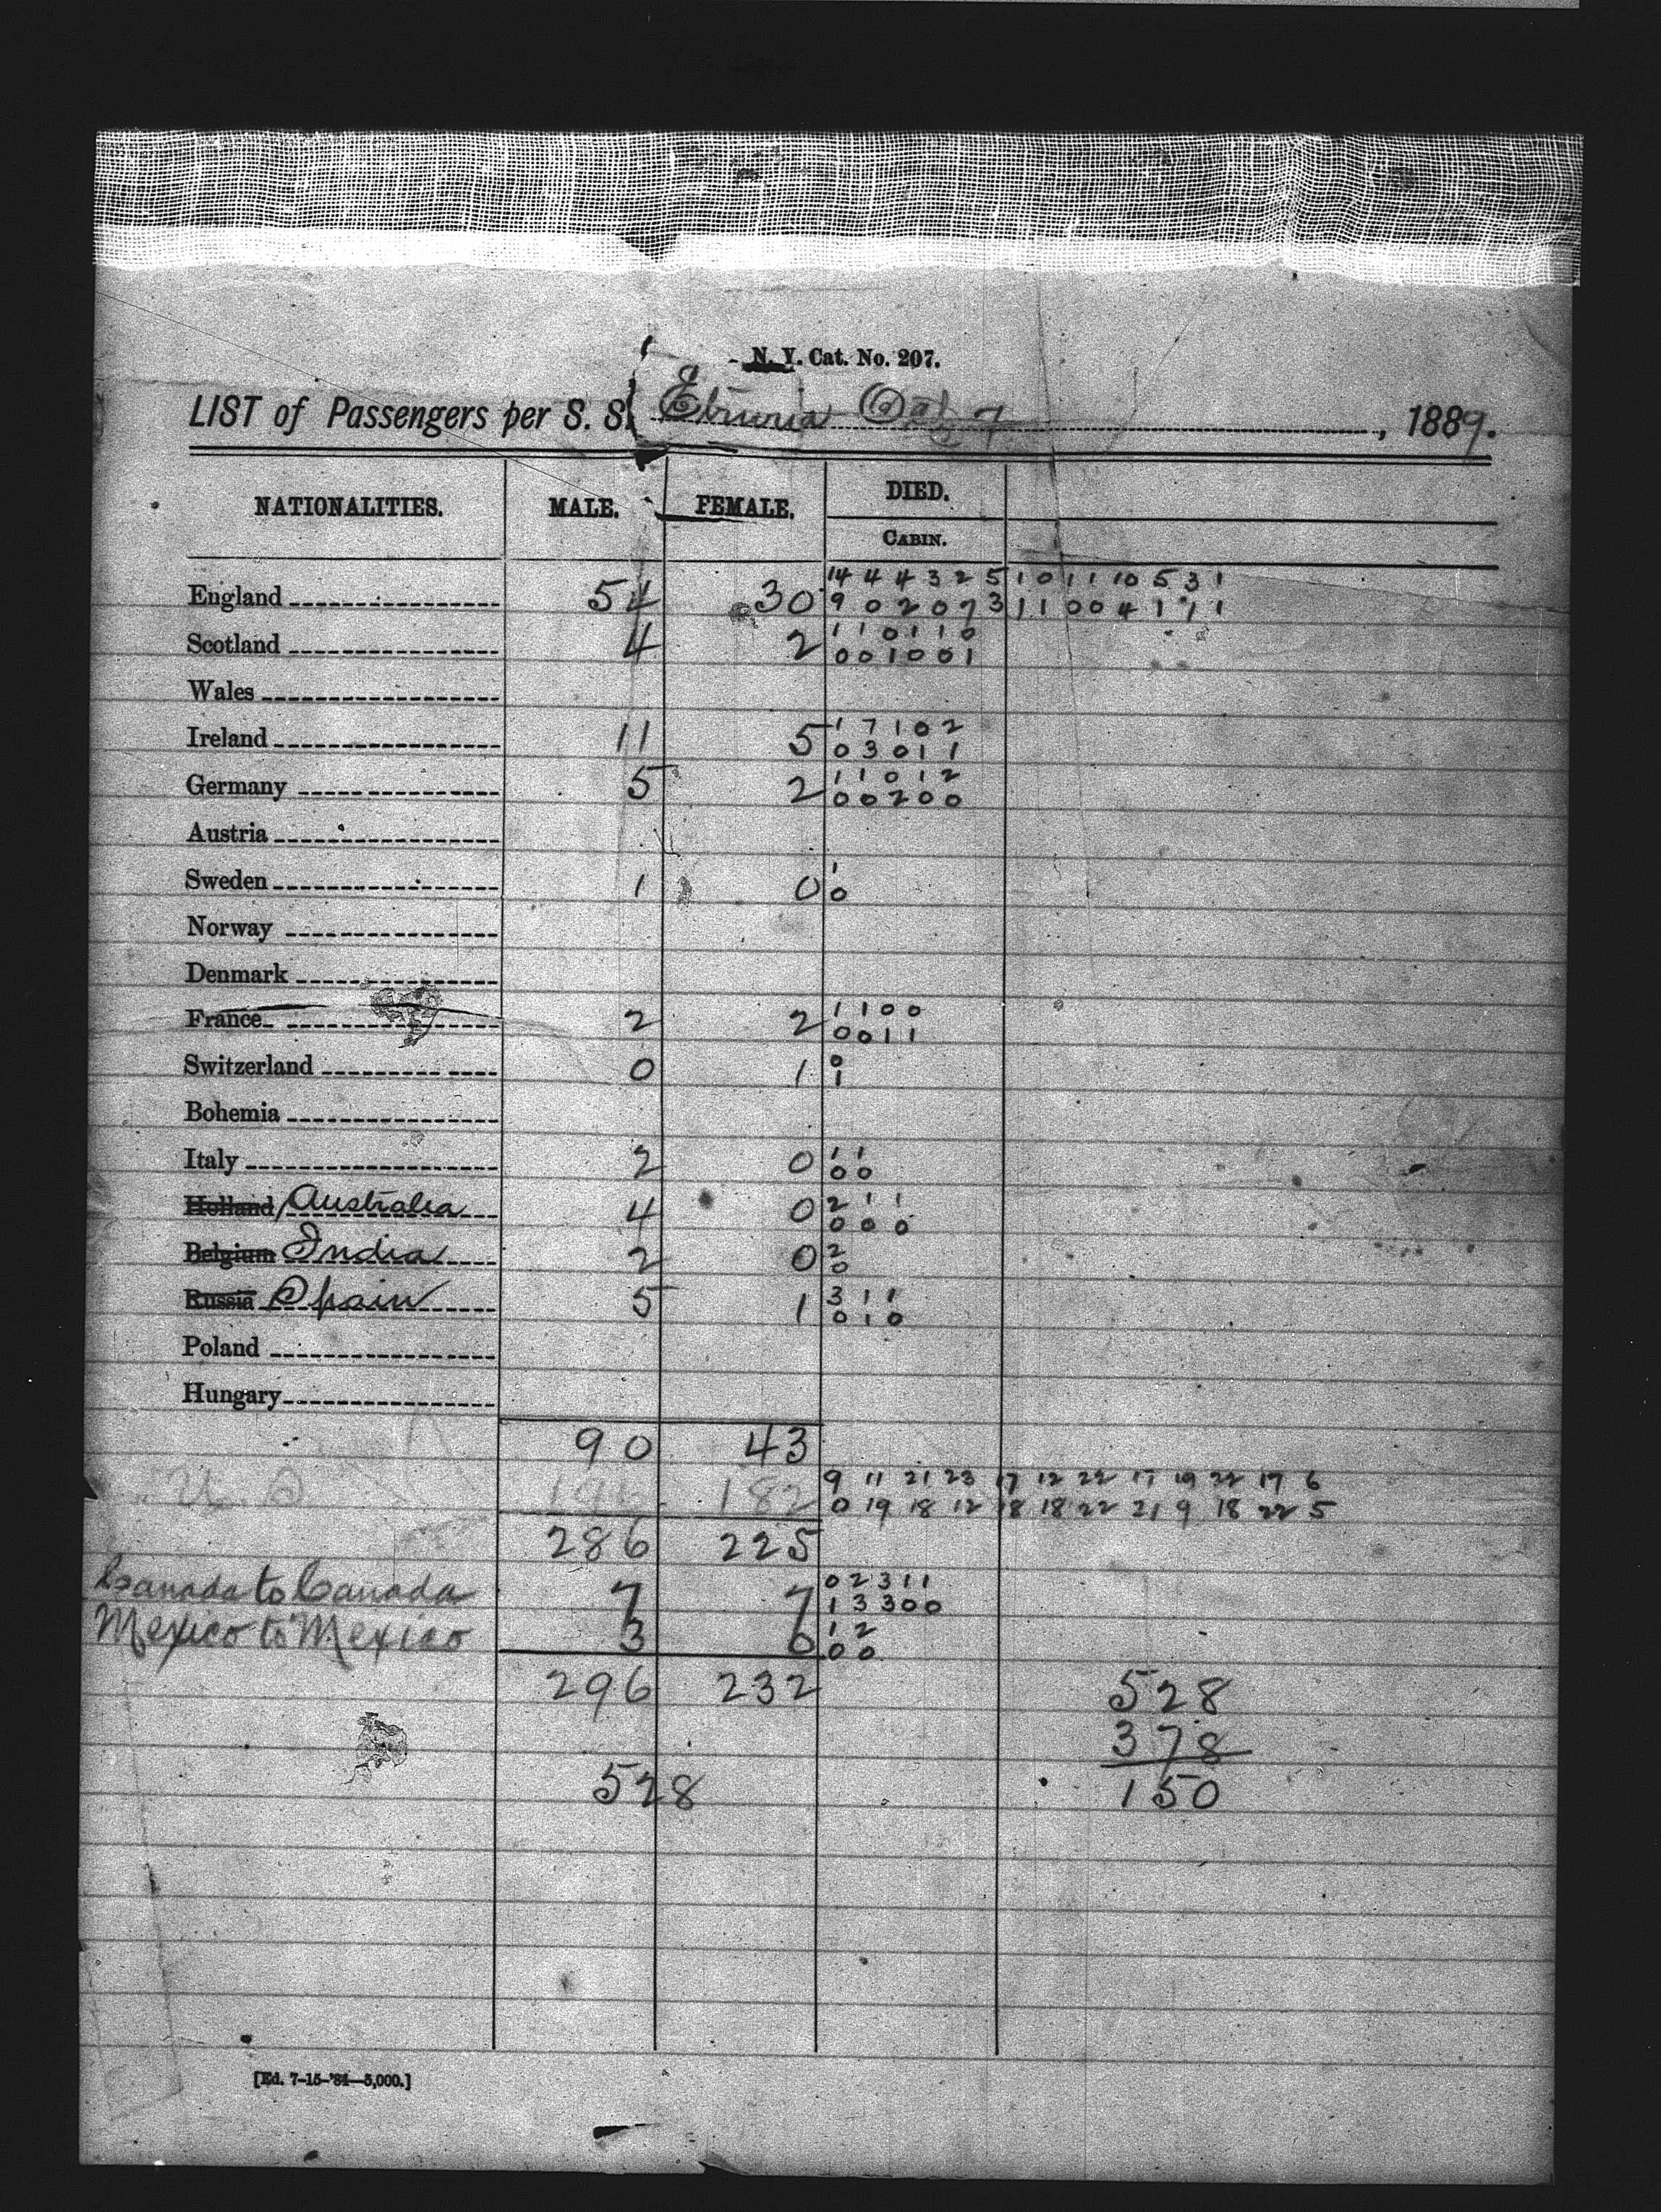 N. Y. Cat. No. 207.
LIST of Passengers per S. S. Etruria Oct 7, 1889.
NATIONALITIES. MALE. FEMALE. DIED.
CABIN.
14 4 4 3 2 5 1 0 1 1 10 5 3 1
England 54 30 9 0 2 0 7 3 1 1 0 0 4 1 1 1
1 1 0 1 1 0
Scotland 4 2 0 0 1 0 0 1
Wales
1 7 1 0 2
Ireland 11 5 0 3 0 1 1
1 1 0 1 2
Germany 5 2 0 0 2 0 0
Austria
1
Sweden 1 0 0
Norway
Denmark
1 1 0 0
France 2 2 0 0 1 1
0
Switzerland 0 1 1
Bohemia
1 1
Italy 2 0 0 0
2 1 1
Holland Australia 4 0 0 0 0
2
Belgium India 2 0 0
3 1 1
Russia Spain 5 1 0 1 0
Poland
Hungary
90 43
9 11 21 23 17 12 22 17 19 22 17 6
U.S 196 182 0 19 18 12 18 18 22 21 9 18 22 5
286 225
0 2 3 1 1
Canada to Canada 7 7 1 3 3 0 0
1 2
Mexico to Mexico 3 0 0 0
296 232 528
378
528 150
[Ed. 7-15-'84—5,000.]